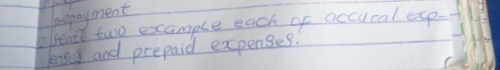 prepayment
2. State two example each of accural exp-
enses and prepaid expenses.